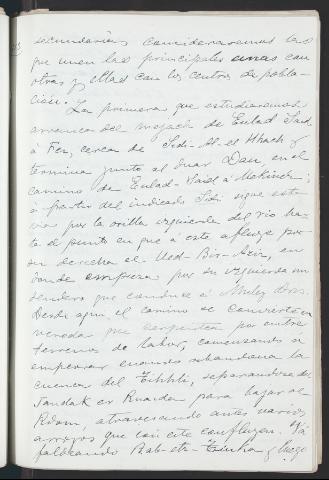 secundarias consideraremos las
que unen las principales unas con
otras y ellas con los centros de pobla-
ción.
La primera que estudiaremos
arranca del mejach de Eulad Said
á Fez, cerca de Sidi-Al-el Hhach y
termina junto al duar Dan, en el
camino de Eulad-Said á Mekinez;
á partir del indicado Sidi sigue esta
via por la orilla izquierda del rio has-
ta el punto en que á este afluye por
su derecha el Ued-Bir-Aziz, en
donde empieza por su izquierda un
sendero que conduce á Muley Dris.
Desde aqui, el camino se convierte en
vereda que serpentea por entre
terrenos de labor, comenzando á
empeorar cuando abandona la
cuenca del separandose del
Jandak er para bajar al
Rdom, atravesando antes varios
arroyos que con este confluyen. Va
faldeando y luego